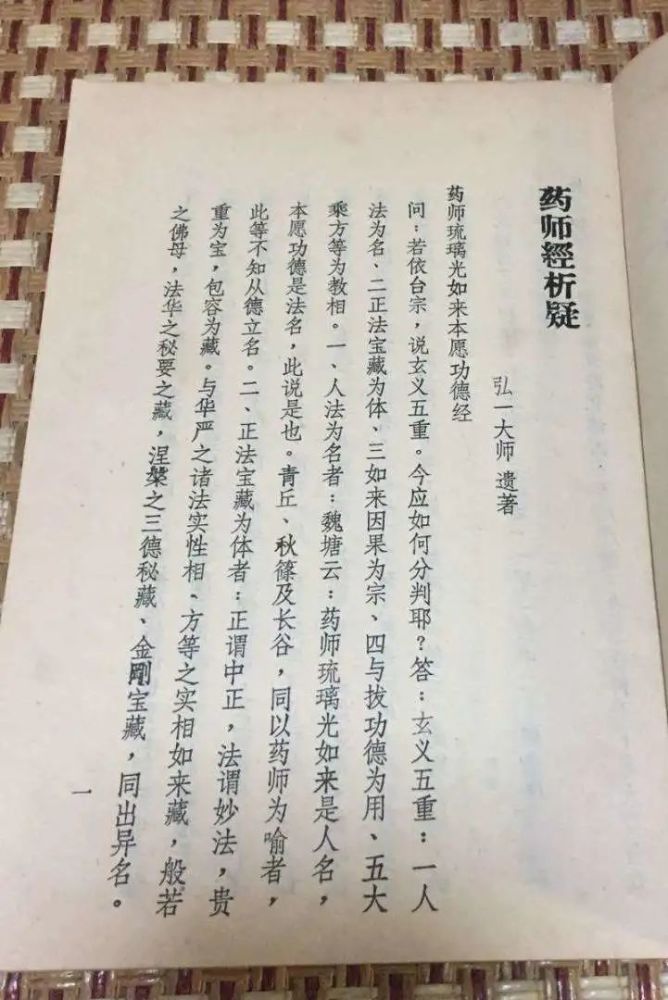 药师經析疑
弘一大师 遗著
药师琉璃光如来本愿功德经
问：若依台宗，说玄义五重。今应如何分判耶？答：玄义五重：一人
法为名、二正法宝藏为体、三如来因果为宗、四与拔功德为用、五大
乘方等为教相。一、人法为名者：魏塘云：药师琉璃光如来是人名，
本愿功德是法名，此说是也。青丘、秋篠及长谷，同以药师为喻者，
此等不知从德立名。二、正法宝藏为体者：正谓中正，法谓妙法，贵
重为宝，包容为藏。与华严之诸法实性相、方等之实相如来藏，般若
之佛母，法华之秘要之藏，涅槃之三德秘藏、金剛宝藏，同出异名。
一